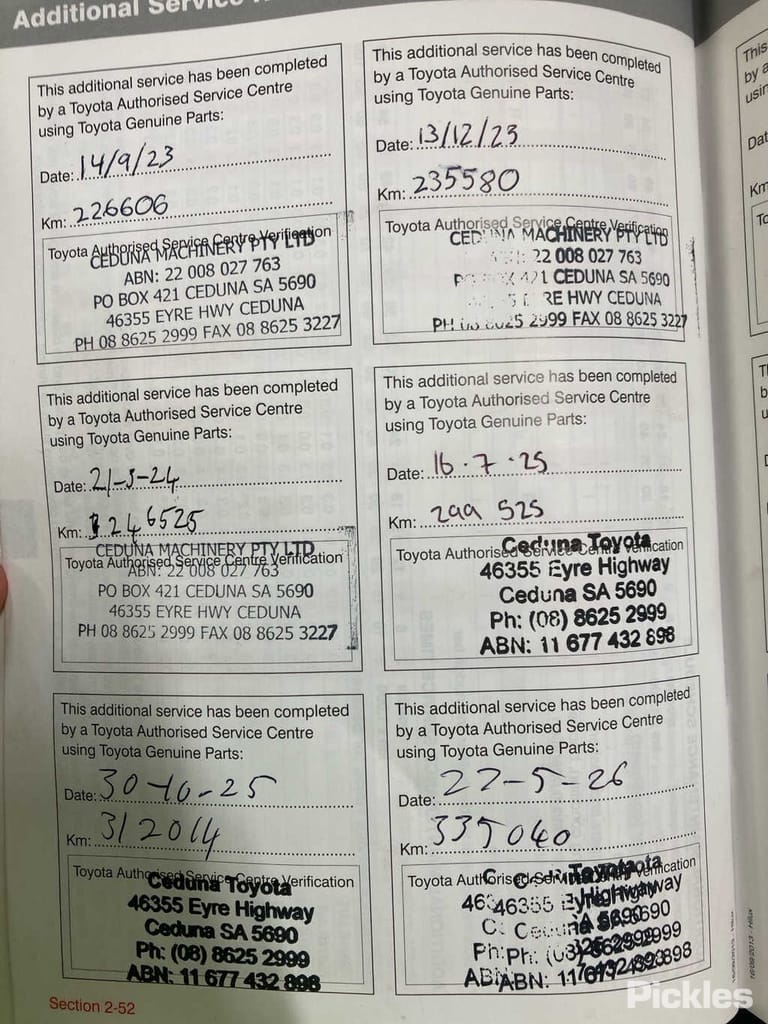 Additional Service
This additional service has been completed
by a Toyota Authorised Service Centre
using Toyota Genuine Parts:
Date: 14/9/23
Km: 226606
Toyota Authorised Service Centre Verification
CEDUNA MACHINERY PTY LTD
ABN: 22 008 027 763
PO BOX 421 CEDUNA SA 5690
46355 EYRE HWY CEDUNA
PH 08 8625 2999 FAX 08 8625 3227
This additional service has been completed
by a Toyota Authorised Service Centre
using Toyota Genuine Parts:
Date: 13/12/23
Km: 235580
Toyota Authorised Service Centre Verification
CEDUNA MACHINERY PTY LTD
22 008 027 763
421 CEDUNA SA 5690
RE HWY CEDUNA
PH 8625 2999 FAX 08 8625 3227
This additional service has been completed
by a Toyota Authorised Service Centre
using Toyota Genuine Parts:
Date: 21-3-24
Km: 246525
Toyota Authorised Service Centre Verification
CEDUNA MACHINERY PTY LTD
ABN: 22 008 027 763
PO BOX 421 CEDUNA SA 5690
46355 EYRE HWY CEDUNA
PH 08 8625 2999 FAX 08 8625 3227
This additional service has been completed
by a Toyota Authorised Service Centre
using Toyota Genuine Parts:
Date: 16.7.25
Km: 299 525
Toyota Authorised Service Centre Verification
Ceduna Toyota
46355 Eyre Highway
Ceduna SA 5690
Ph: (08) 8625 2999
ABN: 11 677 432 898
This additional service has been completed
by a Toyota Authorised Service Centre
using Toyota Genuine Parts:
Date: 30-10-25
Km: 312014
Toyota Authorised Service Centre Verification
Ceduna Toyota
46355 Eyre Highway
Ceduna SA 5690
Ph: (08) 8625 2999
ABN: 11 677 432 898
This additional service has been completed
by a Toyota Authorised Service Centre
using Toyota Genuine Parts:
Date: 22-5-26
Km: 335040
Toyota Authorised Service Centre Verification
Toyota
46355 Eyre Highway
Ceduna SA 5690
Ph: (08) 8625 2999
ABN: 11 677 432 898
Section 2-52
Pickles